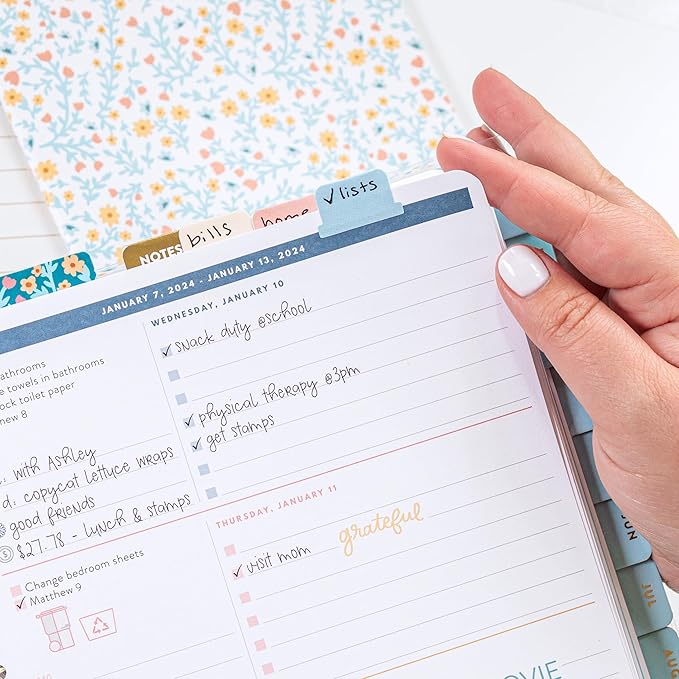 ✓lists
home
bills
NOTES
JANUARY 7, 2024 - JANUARY 13, 2024
WEDNESDAY, JANUARY 10
snack duty @school
physical therapy @3pm
get stamps
towels in bathrooms
toilet paper
8
with Ashley
copycat lettuce wraps
good friends
$27.78 - lunch & stamps
THURSDAY, JANUARY 11
grateful
visit mom
Change bedroom sheets
Matthew 9
JUN
JUL
AUG